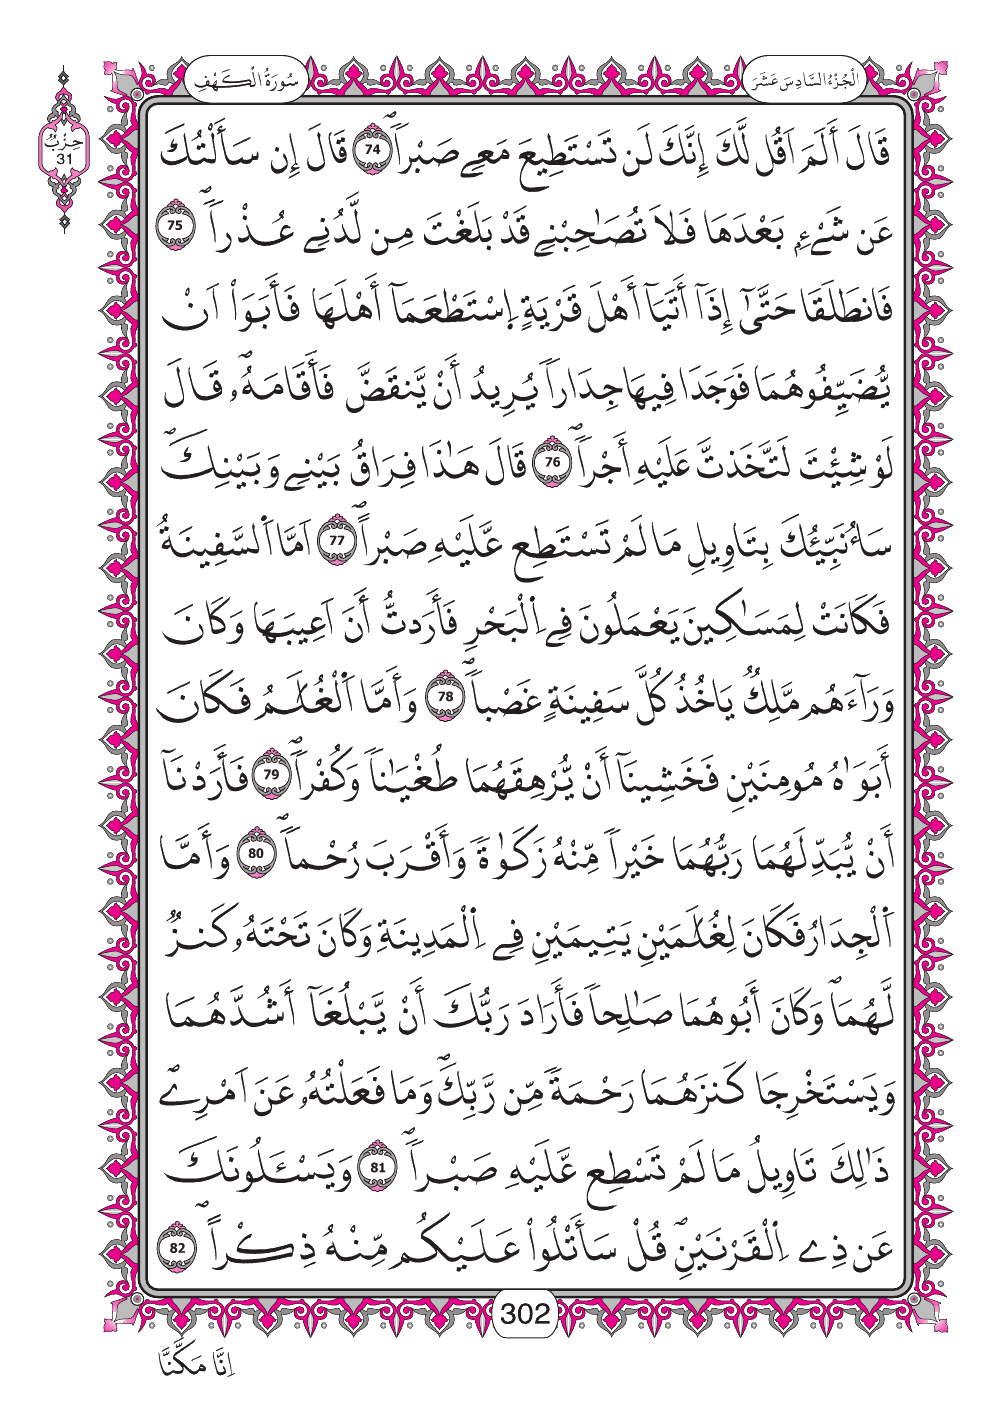 الْجُزْءُ السَّادِسَ عَشَرَ
سُورَةُ الْكَهْفِ
حِزْبٌ
31
قَالَ أَلَمَ اَقُل لَّكَ إِنَّكَ لَن تَسْتَطِيعَ مَعِے صَبْراٗۖ 74 قَالَ إِن سَأَلْتُكَ
عَن شَےْءِۢ بَعْدَهَا فَلَا تُصَٰحِبْنِے قَدْ بَلَغْتَ مِن لَّدُنِے عُذْراٗۖ 75
فَانطَلَقَا حَتَّىٰٓ إِذَآ أَتَيَآ أَهْلَ قَرْيَةٍ اِسْتَطْعَمَآ أَهْلَهَا فَأَبَوَاْ اَنْ
يُّضَيِّفُوهُمَا فَوَجَدَا فِيهَا جِدَاراٗ يُرِيدُ أَنْ يَّنقَضَّ فَأَقَامَهُۥۖ قَالَ
لَوْ شِئْتَ لَتَّخَذتَّ عَلَيْهِ أَجْراٗۖ 76 قَالَ هَٰذَا فِرَاقُ بَيْنِے وَبَيْنِكَۖ
سَأُنَبِّئُكَ بِتَاوِيلِ مَا لَمْ تَسْتَطِع عَّلَيْهِ صَبْراًۖ 77 اَمَّا اَ۬لسَّفِينَةُ
فَكَانَتْ لِمَسَٰكِينَ يَعْمَلُونَ فِے اِ۬لْبَحْرِ فَأَرَدتُّ أَنَ اَعِيبَهَا وَكَانَ
وَرَآءَهُم مَّلِكٞ يَاخُذُ كُلَّ سَفِينَةٍ غَصْباٗۖ 78 وَأَمَّا اَ۬لْغُلَٰمُ فَكَانَ
أَبَوَٰهُ مُومِنَيْنِ فَخَشِينَآ أَنْ يُّرْهِقَهُمَا طُغْيَٰناٗ وَكُفْراٗۖ 79 فَأَرَدْنَآ
أَنْ يُّبَدِّلَهُمَا رَبُّهُمَا خَيْراٗ مِّنْهُ زَكَوٰةٗ وَأَقْرَبَ رُحْماٗۖ 80 وَأَمَّا
اَ۬لْجِدَارُ فَكَانَ لِغُلَٰمَيْنِ يَتِيمَيْنِ فِے اِ۬لْمَدِينَةِ وَكَانَ تَحْتَهُۥ كَنزٞ
لَّهُمَاۖ وَكَانَ أَبُوهُمَا صَٰلِحاٗ فَأَرَادَ رَبُّكَ أَنْ يَّبْلُغَآ أَشُدَّهُمَا
وَيَسْتَخْرِجَا كَنزَهُمَا رَحْمَةٗ مِّن رَّبِّكَۖ وَمَا فَعَلْتُهُۥ عَنَ اَمْرِےۖ
ذَٰلِكَ تَاوِيلُ مَا لَمْ تَسْطِع عَّلَيْهِ صَبْراٗۖ 81 وَيَسْـَٔلُونَكَ
عَن ذِے اِ۬لْقَرْنَيْنِۖ قُلْ سَأَتْلُواْ عَلَيْكُم مِّنْهُ ذِكْراًۖ 82
302
اِنَّا مَكَّنَّا